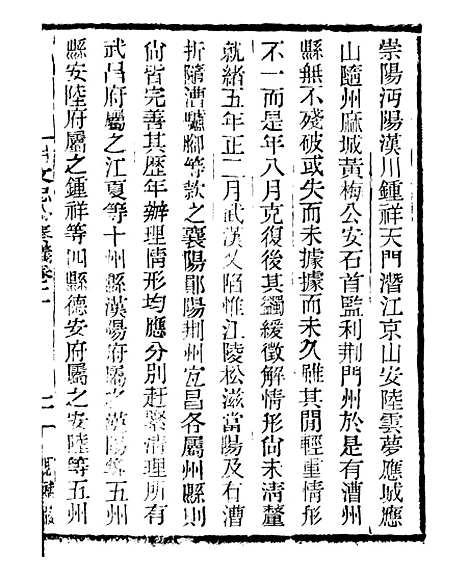 崇陽沔陽漢川鍾祥天門潛江京山安陸雲夢應城應
山隨州麻城黃梅公安石首監利荆門州於是有漕州
縣無不殘破或失而未據據而未久雖其閒輕重情形
不一而是年八月克復後其蠲緩徵解情形尙未淸釐
就緒五年正二月武漢又陷惟江陵松滋當陽及右漕
折隨漕驢腳等款之襄陽鄖陽荆州宜昌各屬州縣則
尙皆完善其歷年辦理情形均應分別赶緊淸理所有
武昌府屬之江夏等十州縣漢陽府屬之漢陽等五州
縣安陸府屬之鍾祥等四縣德安府屬之安陸等五州